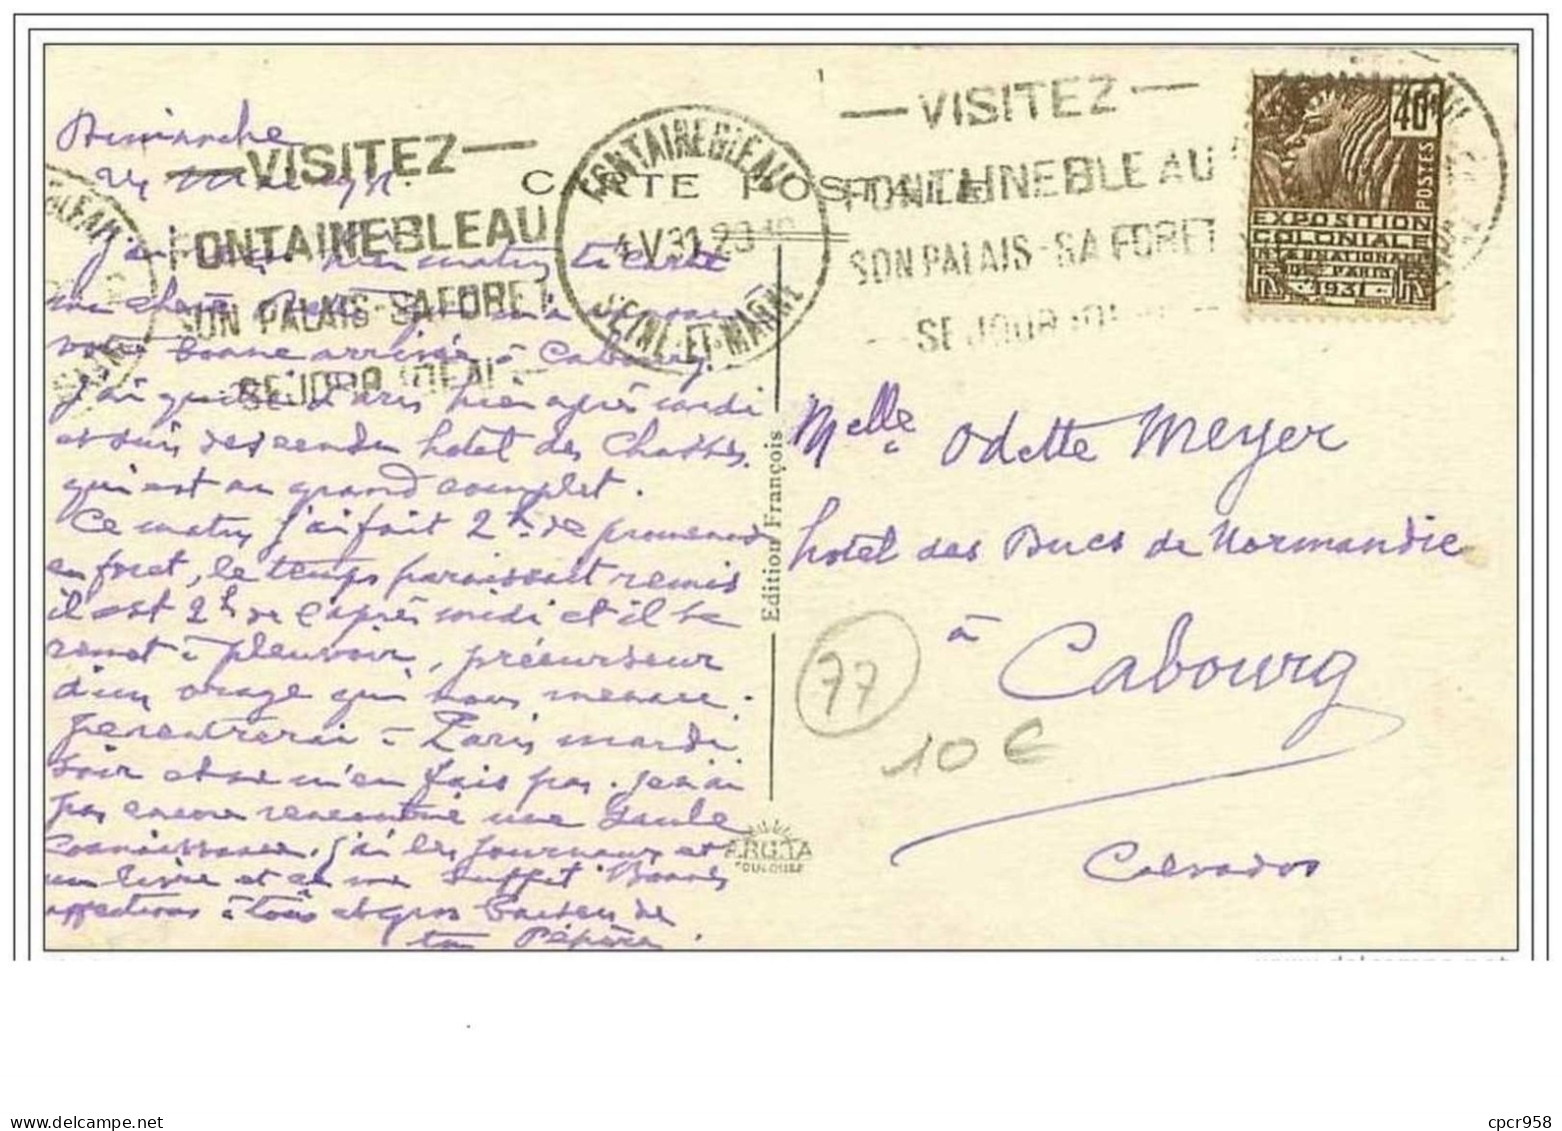 Dimanche
24 Mai 1931.
CARTE POSTALE
J'ai reçu hier matin ta carte
ma chère Odette qui m'a
votre bonne arrivée à Cabourg.
J'ai quitté Paris hier après midi
et suis descendu hotel des Chasses
qui est au grand complet.
Ce matin j'ai fait 2h de promenade
en foret, le temps paraissait remis
il est 2h de l'après midi et il se
remet à pleuvoir, précurseur
d'un orage qui nous menace.
Je rentrerai à Paris mardi
soir et ne m'en fais pas. Je n'ai
pas encore rencontré une seule
connaissance, j'ai les journaux et
un livre et ça me suffit. Bonnes
affections à tous et gros baisers de
ton Pépère.
VISITEZ
FONTAINEBLEAU
SON PALAIS-SA FORET
SEJOUR IDEAL
FONTAINEBLEAU
SEINE-ET-MARNE
VISITEZ
FONTAINEBLEAU
SON PALAIS-SA FORET
SEJOUR
40c
POSTES
EXPOSITION
COLONIALE
INTERNATIONALE
DE PARIS
1931
Edition François
ARGRA
TOULOUSE
Melle Odette Meyer
hotel des Ducs de Normandie
à Cabourg
Calvados
77
10€
cpcr958